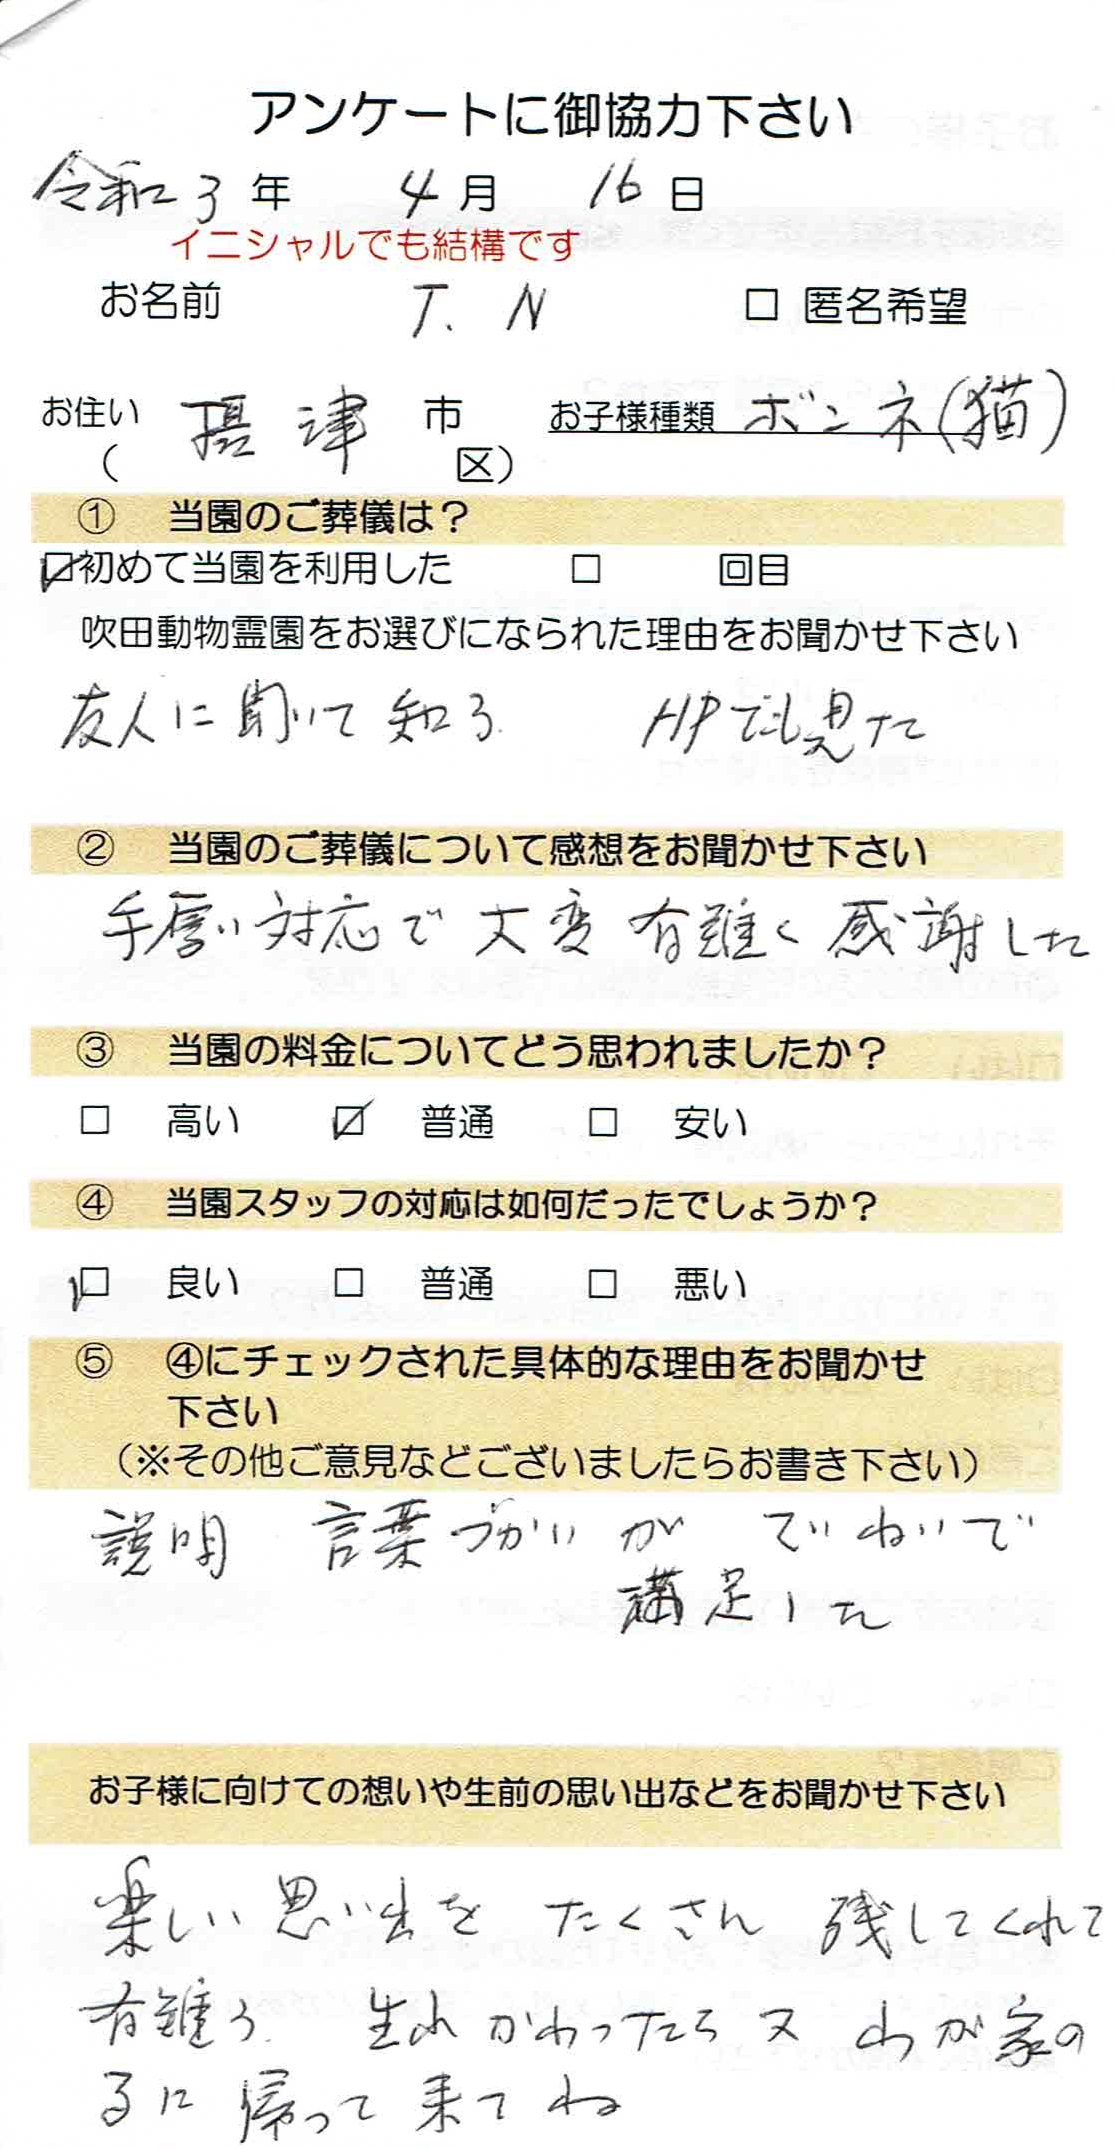 アンケートに御協力下さい
令和3年 4月 16日
イニシャルでも結構です
お名前 T. N □ 匿名希望
お住い 摂津 市 お子様種類 ボンネ(猫)
( 区)
① 当園のご葬儀は?
☑初めて当園を利用した □ 回目
吹田動物霊園をお選びになられた理由をお聞かせ下さい
友人に聞いて知る. HPでも見た
② 当園のご葬儀について感想をお聞かせ下さい
手厚い対応で大変有難く感謝した
③ 当園の料金についてどう思われましたか?
□ 高い ☑ 普通 □ 安い
④ 当園スタッフの対応は如何だったでしょうか?
☑ 良い □ 普通 □ 悪い
⑤ ④にチェックされた具体的な理由をお聞かせ
下さい
(※その他ご意見などございましたらお書き下さい)
説明 言葉づかいが ていねいで
満足した
お子様に向けての想いや生前の思い出などをお聞かせ下さい
楽しい思い出をたくさん残してくれて
有難う. 生れかわったら又わが家の
に帰って来てね